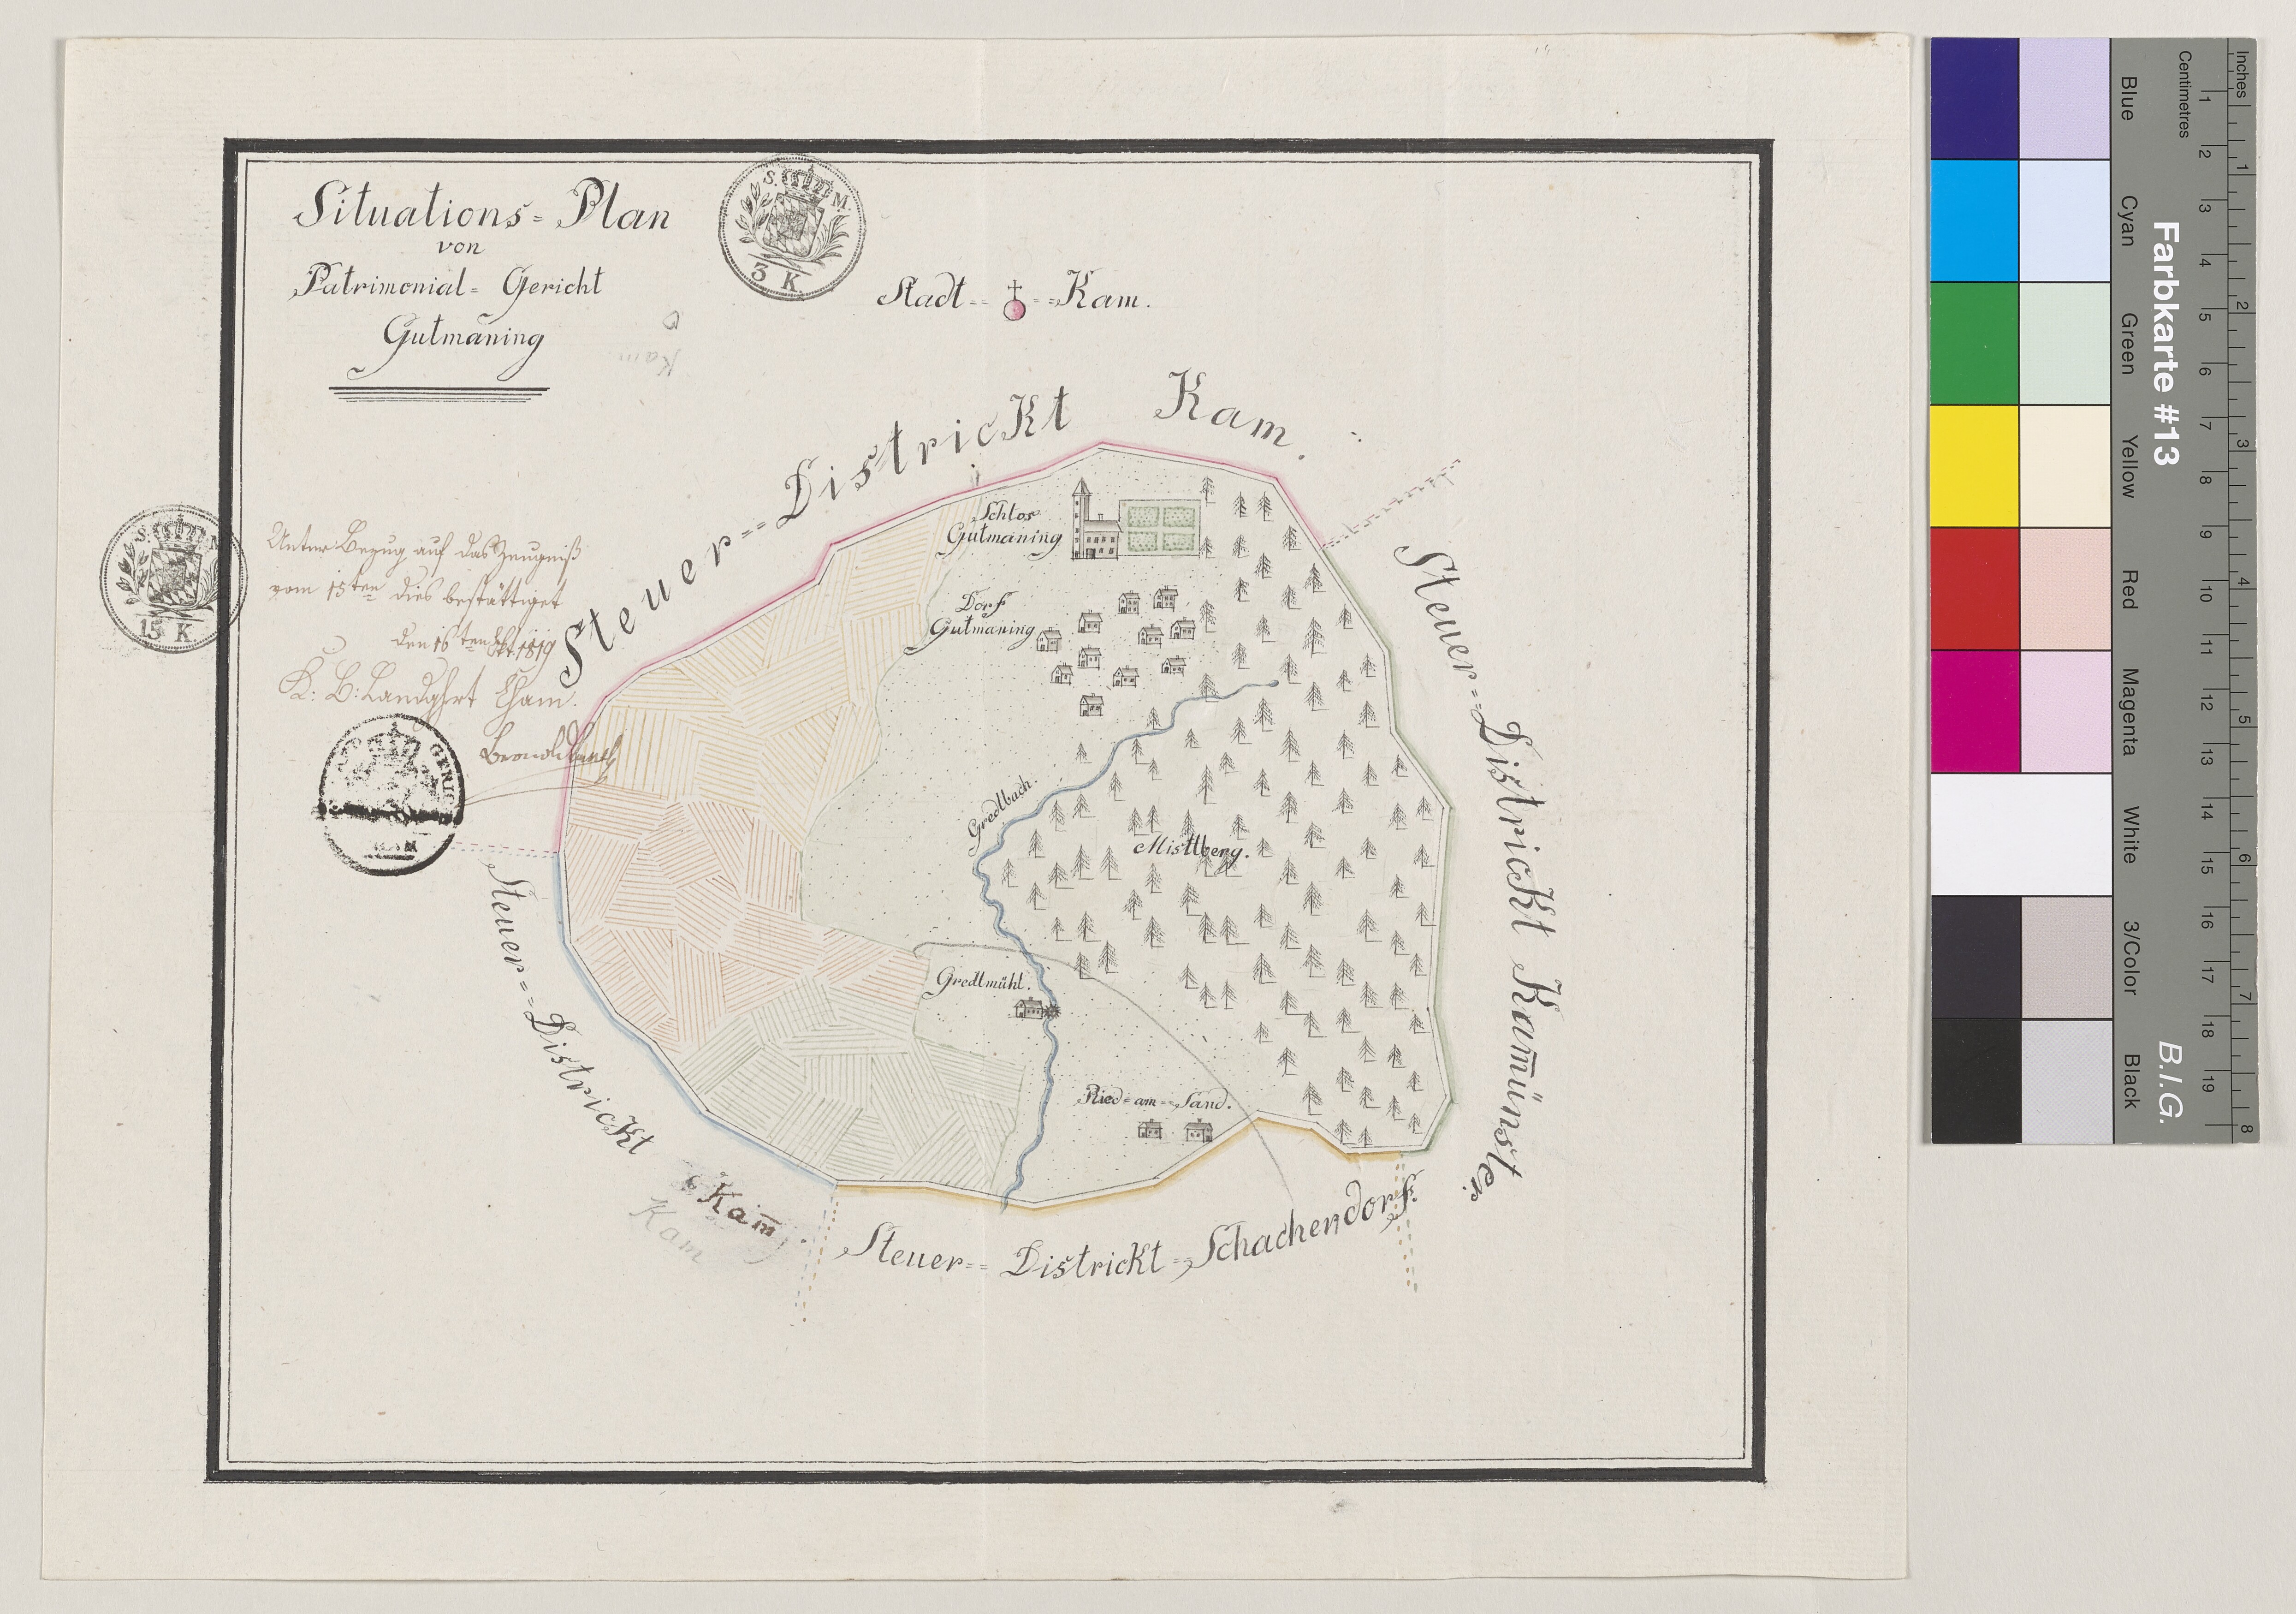 Situations = Plan
von
Patrimonial = Gericht
Gutmāning
S. M.
3 K.
Stadt = = Kam.
Kam
S. M
15 K.
Unter Bezug auf das Zeugniß
vom 15ten dies bestättiget
den 16ten 1819
K: B: Landghrt Cham.
GERIC
Steuer = = Districkt Kam.
Steuer = = Districkt Kam̄ünster.
Steuer = = Districkt Kam̄
Kam
Steuer = = Districkt = Schachendorf.
Schlos
Gutmāning
Dorf
Gutmāning
Gredlbach.
Mistlberg.
Gredlmühl.
Ried = am = Sand.
Farbkarte #13
B.I.G.
Centimetres
Inches
Blue
Cyan
Green
Yellow
Red
Magenta
White
3/Color
Black
1 2 3 4 5 6 7 8 9 10 11 12 13 14 15 16 17 18 19
1 2 3 4 5 6 7 8